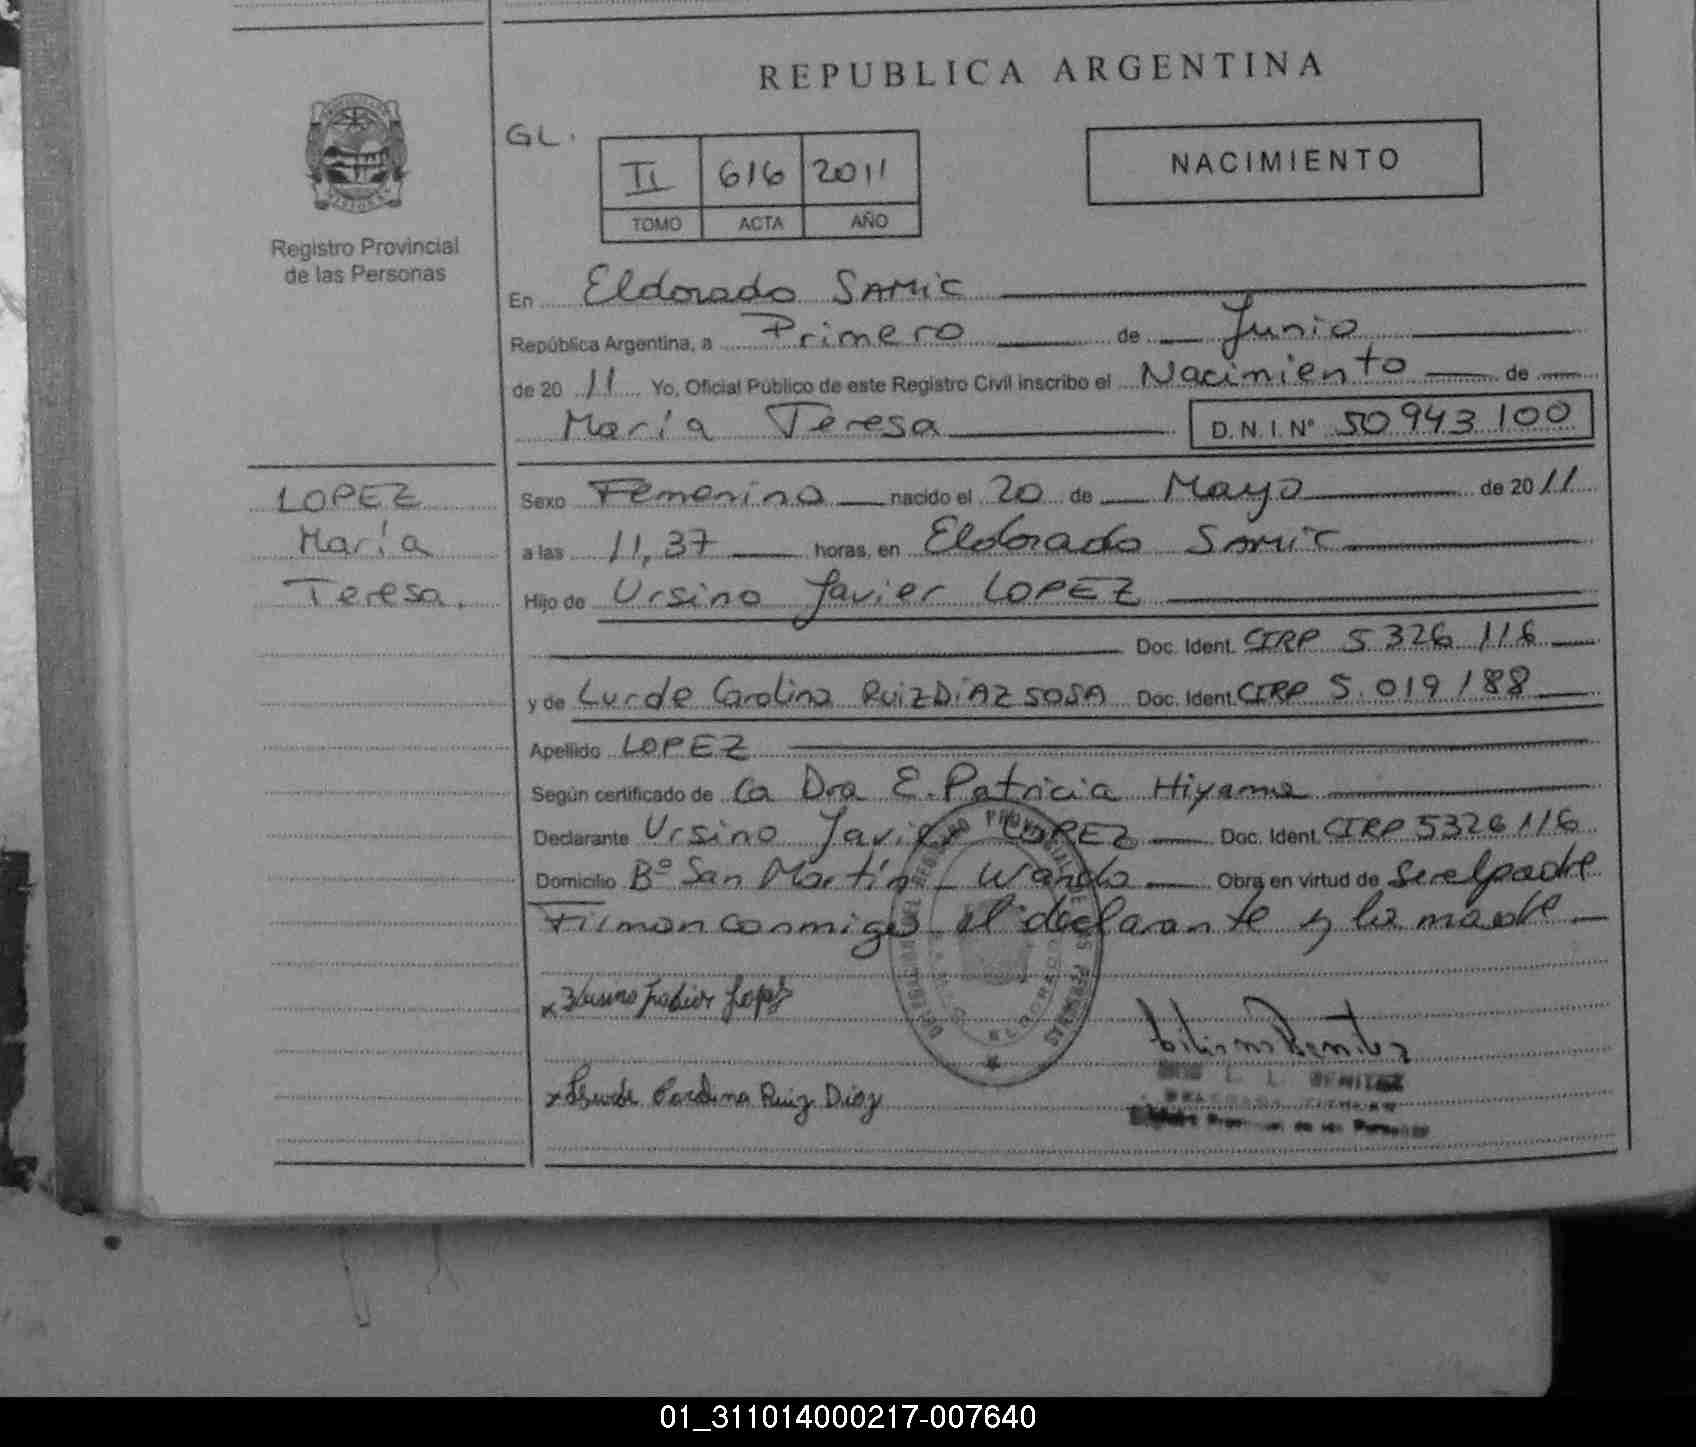 REPUBLICA ARGENTINA
GL.
NACIMIENTO
II 616 2011
TOMO ACTA AÑO
Registro Provincial
de las Personas
En Eldorado SAMIC
República Argentina, a Primero de Junio
de 20 11 Yo, Oficial Público de este Registro Civil inscribo el Nacimiento de
María Teresa D.N.I. Nº 50943100
LOPEZ
María
Teresa.
Sexo Femenino nacido el 20 de Mayo de 20 11
a las 11,37 horas, en Eldorado SAMIC
Hijo de Ursino Javier LOPEZ
Doc. Ident. CIRP 5326116
y de Lurde Carolina RUIZ DIAZ SOSA Doc. Ident. CIRP 5.019188
Apellido LOPEZ
Según certificado de la Dra E. Patricia Hiyama
Declarante Ursino Javier LOPEZ Doc. Ident. CIRP 5326116
Domicilio Bº San Martín - Wanda Obra en virtud de Ser el padre
Firman conmigo el declarante y la madre
x Ursino Javier Lopez
x Lurde Carolina Ruiz Diaz
L. L. BENITEZ
01_311014000217-007640